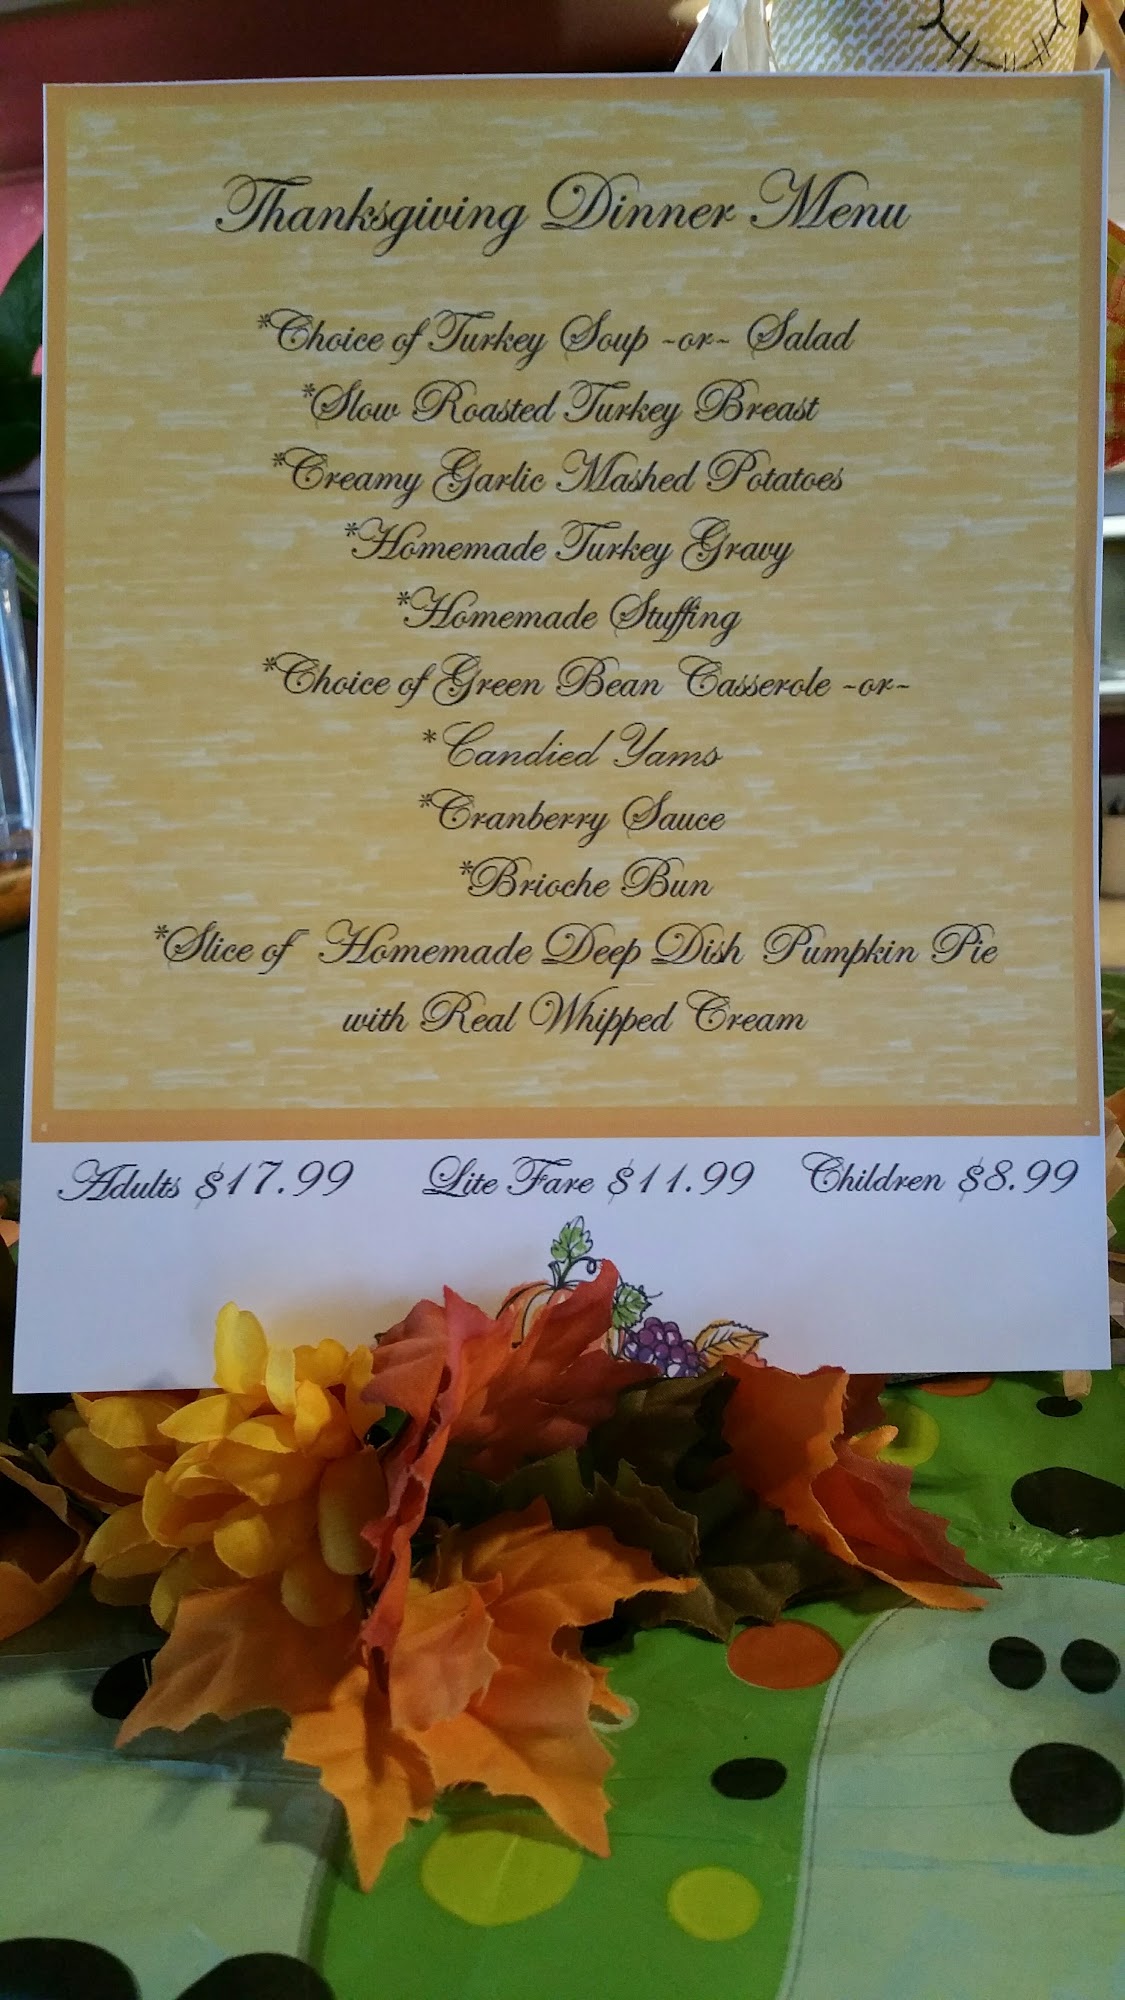 Thanksgiving Dinner Menu
*Choice of Turkey Soup ~or~ Salad
*Slow Roasted Turkey Breast
*Creamy Garlic Mashed Potatoes
*Homemade Turkey Gravy
*Homemade Stuffing
*Choice of Green Bean Casserole ~or~
*Candied Yams
*Cranberry Sauce
*Brioche Bun
*Slice of Homemade Deep Dish Pumpkin Pie
with Real Whipped Cream
Adults $17.99 Lite Fare $11.99 Children $8.99